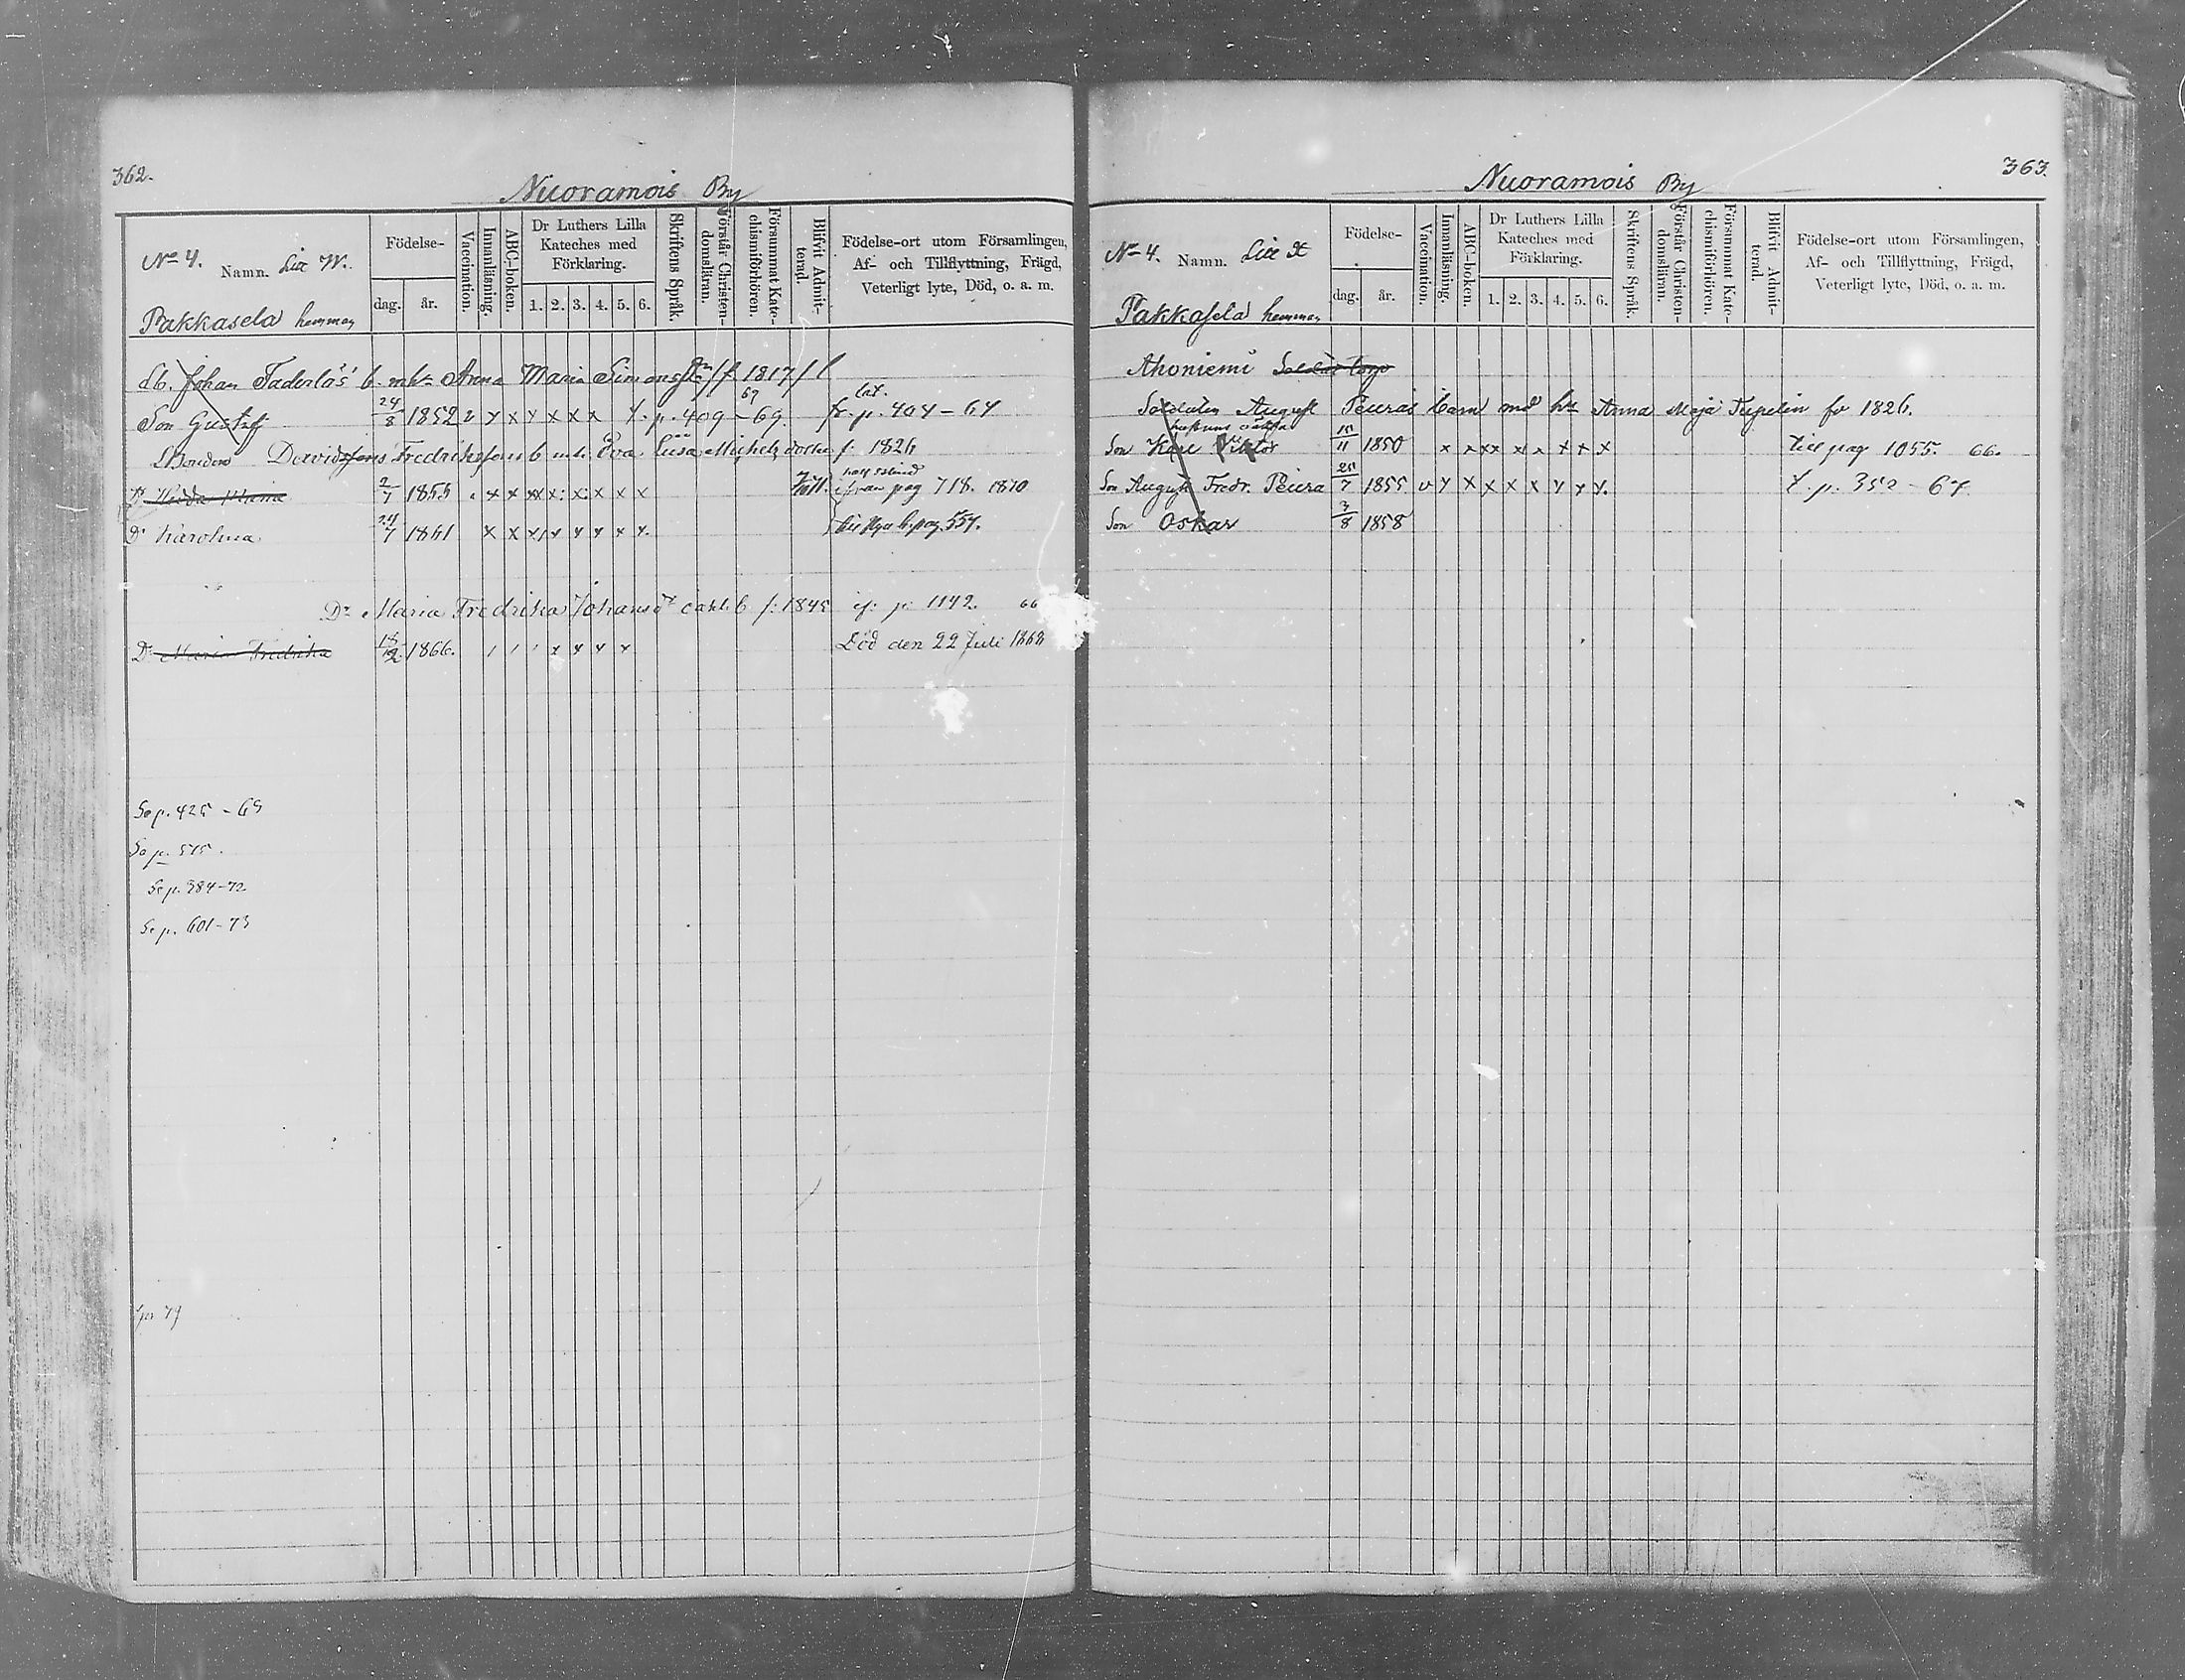 362.
Nuoramois By
No 4. Namn. Lit W.
Pakkasela hemman
Födelse-
dag. år.
Vaccination.
Innanläsning.
ABC-boken.
Dr Luthers Lilla
Kateches med
Förklaring.
1. 2. 3. 4. 5. 6.
Skriftens Språk.
Förstår Christen-
domsläran.
Försummat Kate-
chismiförhören.
Blifvit Admit-
terad.
Födelse-ort utom Församlingen,
Af- och Tillflyttning, Frägd,
Veterligt lyte, Död, o. a. m.
Johan Faderlös' b. m. h. Anna Maria Simonsdr f. 1817
Son Gustaf 24/8 1852 v y x y x x x p. 409 - 69. p. 404 - 64
Bonden Davidssons Fredrikssons b m. h. Eva Lisa Michelsdotter f. 1826
Dr Hedda Maria 2/7 1855 x x x x x x x x ifrån pag 718. 1870
Dr Karolina 24/7 1861 x x x x x x x x pag. 554.
Dr Maria Fredrika Johansdr oäkt b f. 1845 p. 1142. 66
Dr Maria Fredrika 18/12 1866. x x x x Död den 22 Juli 1868
Se p. 425 - 69
Se p. 515.
Se p. 384-72
Se p. 601-73
363.
Nuoramois By
No 4. Namn. Lit X
Pakkasela hemman
Födelse-
dag. år.
Vaccination.
Innanläsning.
ABC-boken.
Dr Luthers Lilla
Kateches med
Förklaring.
1. 2. 3. 4. 5. 6.
Skriftens Språk.
Förstår Christen-
domsläran.
Försummat Kate-
chismiförhören.
Blifvit Admit-
terad.
Födelse-ort utom Församlingen,
Af- och Tillflyttning, Frägd,
Veterligt lyte, Död, o. a. m.
Ahoniemi Soldat torp
Soldaten August Peuras barn med h. Anna Maja Tupelin fö 1826.
hustruns oäkta
Son Karl Viktor 15/11 1850 x x x x x x x x x till pag 1055. 66.
Son August Fredr. Peura 25/7 1855 v y x x x x y y y. p. 352 - 67
Son Oskar 3/8 1858